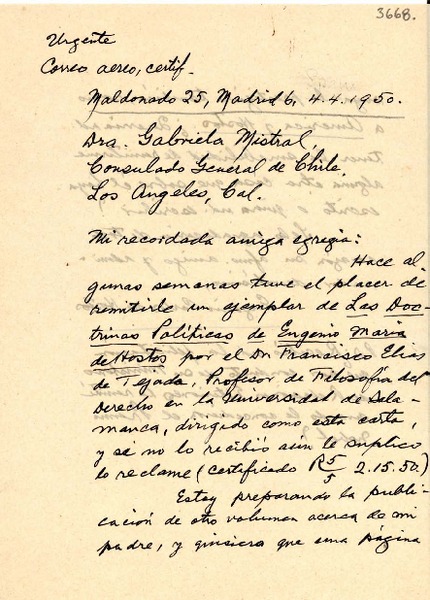 3668.
Urgente
Correo aereo, certif.
Maldonado 25, Madrid 6, 4.4.1950.
Dra. Gabriela Mistral,
Consulado General de Chile,
Los Angeles, Cal.
Mi recordada amiga egregia:
Hace al
gunas semanas tuve el placer de
remitirle un ejemplar de Las Doc-
trinas Políticas de Eugenio María
de Hostos por el Dr Francisco Elias
de Tejada, Profesor de Filosofía del
Derecho en la Universidad de Sala-
manca, dirigido como esta carta,
y si no lo recibió aún le suplico
lo reclame (certificado R 5/5 2.15.50.)
Estoy preparando la publi-
cación de otro volumen acerca de mi
padre, y quisiera que una página